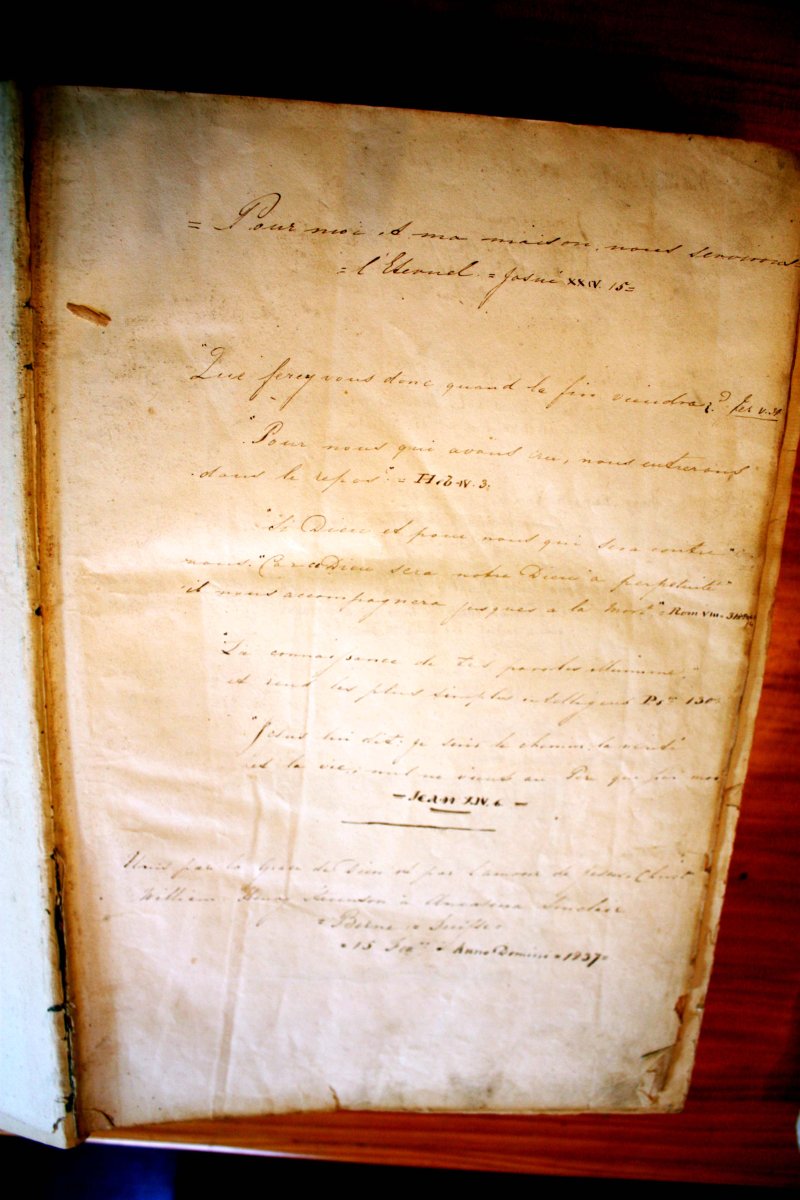 = Pour moi et ma maison, nous servirons
= l'Eternel. = Josué XXIV. 15 =
"Que ferez vous donc quand la fin viendra?" Jer V. 31
"Pour nous qui avons cru, nous entrerons
dans le repos" = Héb IV. 3.
"Si Dieu est pour nous qui sera contre
nous." "Car ce Dieu sera notre Dieu a perpetuité
il nous accompagnera jusques a la mort" Rom VIII. 31
"La connaissance de tes paroles illumine,
et rend les plus simples intelligens Ps. 130
"Jesus lui dit: je suis le chemin, la verité
et la vie; nul ne vient au Père que par moi
— Jean XIV. 6. —
Unis par la Grace de Dieu et par l'amour de Jesus Christ
William Henry à Sinclair
= Berne = Suisse =
= 15 = Anno Domini = 1837 =